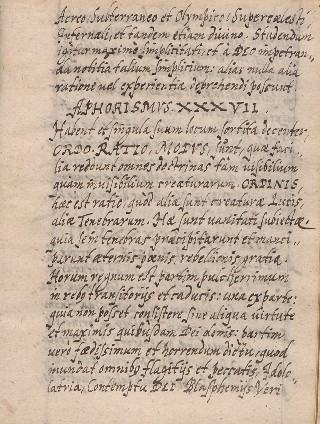 Aereo, Subterraneo et Olympico: Supercœlesti
Infernali, et tandem etiam divino. Studendum
igitur maxime simplicitati, et a DEO impetran-
da notitia talium simplicium: alias nulla alia
ratione vel experientia deprehendi possunt
APHORISMUS XXXVII
Habent et singula suum locum sortita decenter.
ORDO. RATIO. MODUS, sunt, quæ faci
lia reddunt omnes doctrinas tam visibilium
quam invisibilium creaturarum. ORDINIS,
hæc est ratio, quod aliæ sunt creaturæ Lucis,
aliæ Tenebrarum. Hæ sunt vanitati subiectæ
quia se in tenebras præcipitarunt et manci-
parunt æternis pœnis, rebellionis gratia.
Horum regnum est partim pulcherrimum
in rebus transitorijs et caducis: una ex parte:
quia non posset consistere sine aliqua virtute
et maximis quibusdam Dei donis: partim
vero fœdissimum et horrendum dictu, quod
omnibus flagitijs et peccatis, Idolo-
latria, Contemptu DEI Blasphemijs Veri